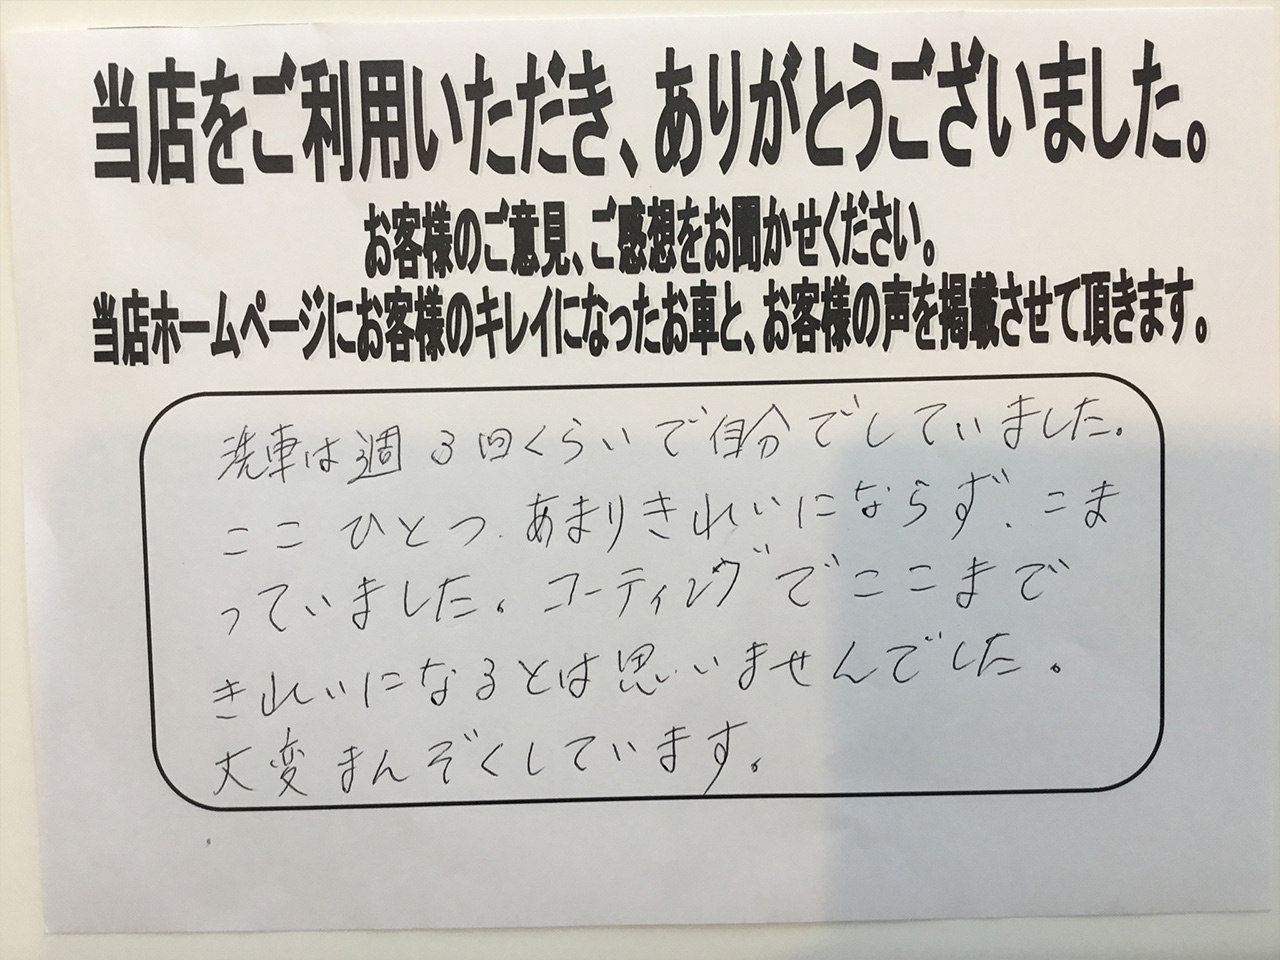 当店をご利用いただき、ありがとうございました。
お客様のご意見、ご感想をお聞かせください。
当店ホームページにお客様のキレイになったお車と、お客様の声を掲載させて頂きます。
洗車は週3回くらいで自分でしていました。
ここひとつ、あまりきれいにならず、こま
っていました。コーティングでここまで
きれいになるとは思いませんでした。
大変まんぞくしています。